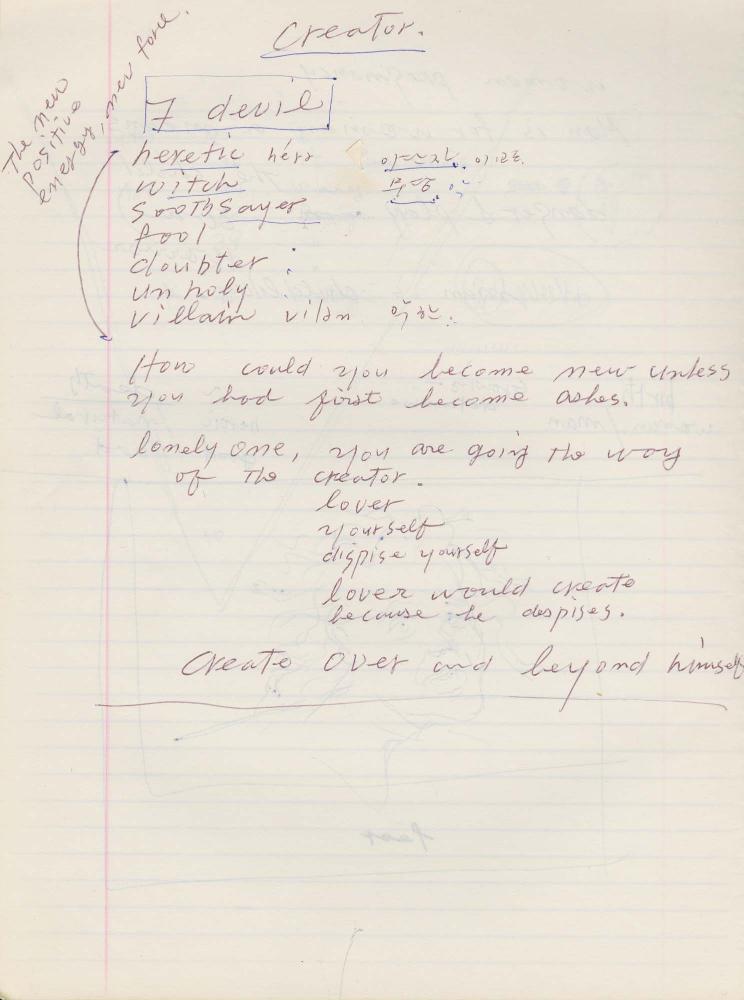 Creator.
The new
positive
energy, new force.
7 devil
heretic héré 이단자, 이교도
witch 마녀
soothsayer
fool
doubter
unholy
villain vilən 악한.
How could you become new unless
you had first become ashes.
lonely one, you are going the way
of the creator.
lover
yourself
dispise yourself
lover would create
because he despises.
Create over and beyond himself